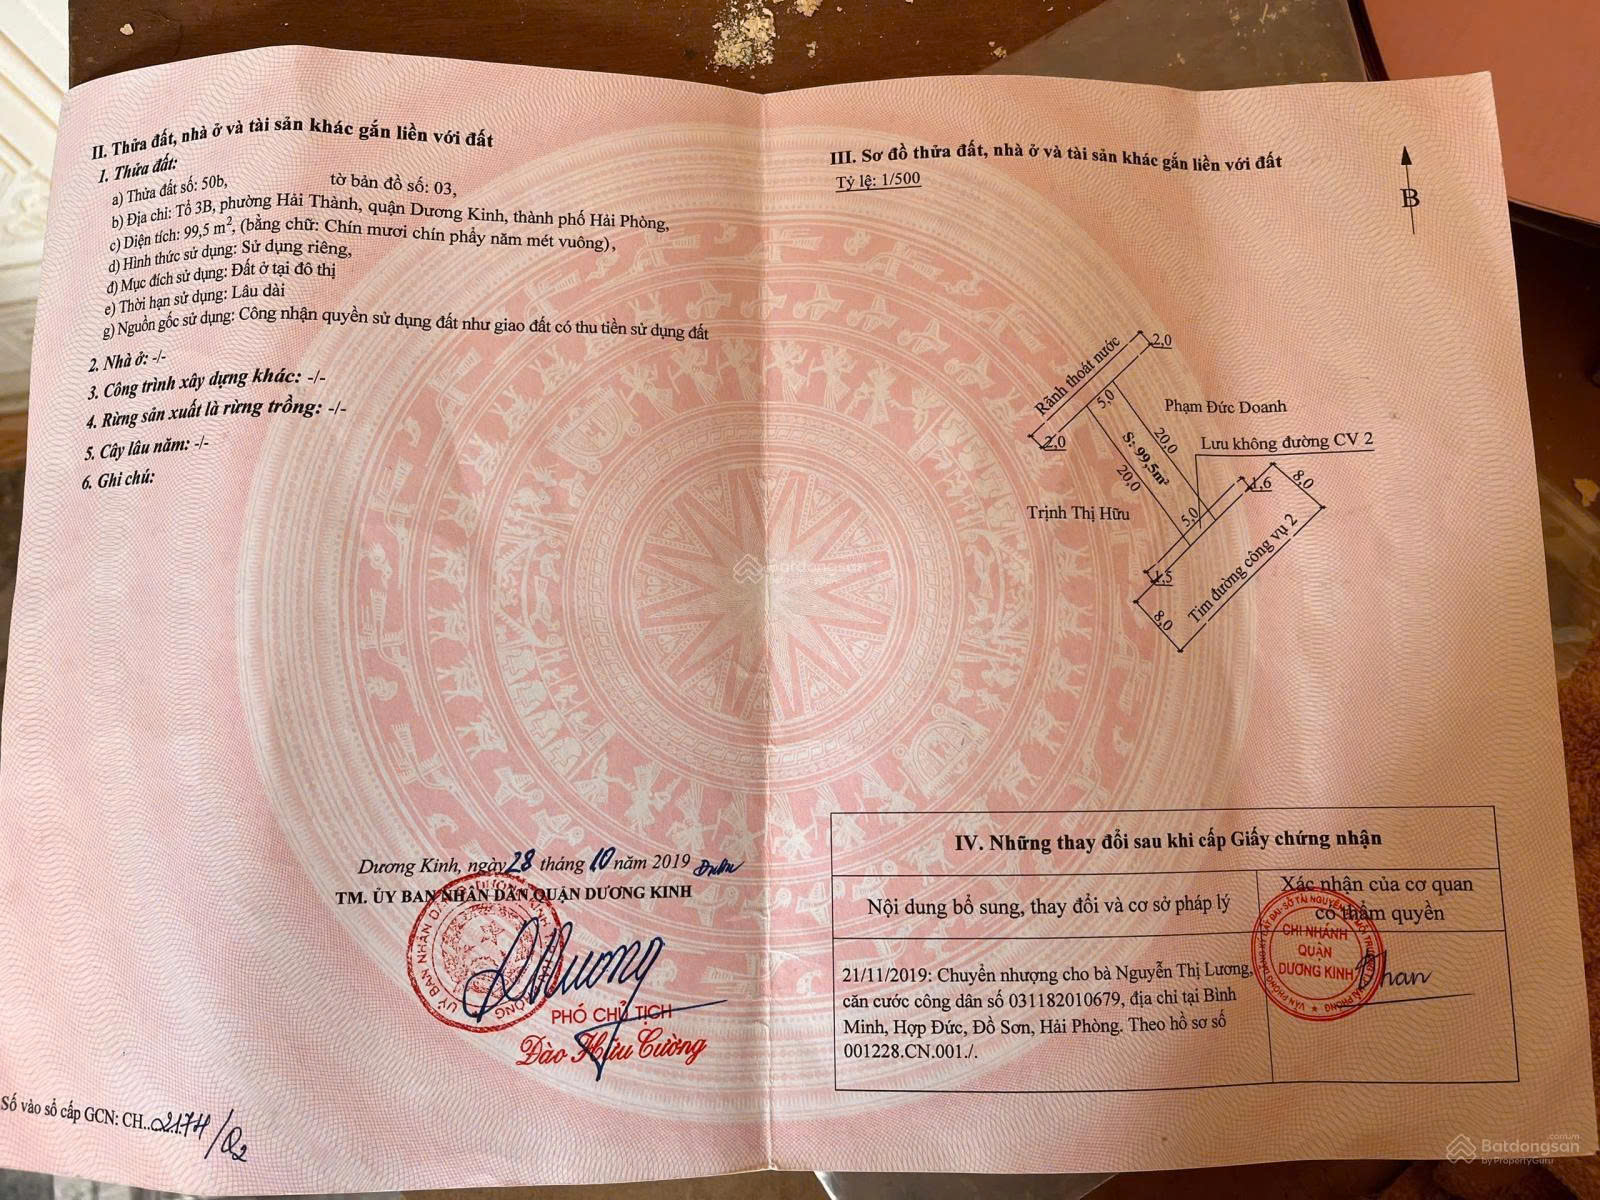 II. Thửa đất, nhà ở và tài sản khác gắn liền với đất
1. Thửa đất:
a) Thửa đất số: 50b, tờ bản đồ số: 03,
b) Địa chỉ: Tổ 3B, phường Hải Thành, quận Dương Kinh, thành phố Hải Phòng,
c) Diện tích: 99,5 m², (bằng chữ: Chín mươi chín phẩy năm mét vuông),
d) Hình thức sử dụng: Sử dụng riêng,
đ) Mục đích sử dụng: Đất ở tại đô thị
e) Thời hạn sử dụng: Lâu dài
g) Nguồn gốc sử dụng: Công nhận quyền sử dụng đất như giao đất có thu tiền sử dụng đất
2. Nhà ở: -/-
3. Công trình xây dựng khác: -/-
4. Rừng sản xuất là rừng trồng: -/-
5. Cây lâu năm: -/-
6. Ghi chú:
Dương Kinh, ngày 28 tháng 10 năm 2019
TM. ỦY BAN NHÂN DÂN QUẬN DƯƠNG KINH
PHÓ CHỦ TỊCH
Đào Hữu Cường
Số vào sổ cấp GCN: CH..2174/Q2
III. Sơ đồ thửa đất, nhà ở và tài sản khác gắn liền với đất
Tỷ lệ: 1/500
B
Rãnh thoát nước
2,0
2,0
5,0
Phạm Đức Doanh
20,0
S: 99,5m²
20,0
Lưu không đường CV 2
Trịnh Thị Hữu
5,0
1,6
8,0
1,5
8,0
Tim đường công vụ 2
IV. Những thay đổi sau khi cấp Giấy chứng nhận
Nội dung bổ sung, thay đổi và cơ sở pháp lý
Xác nhận của cơ quan
có thẩm quyền
21/11/2019: Chuyển nhượng cho bà Nguyễn Thị Lương,
căn cước công dân số 031182010679, địa chỉ tại Bình
Minh, Hợp Đức, Đồ Sơn, Hải Phòng. Theo hồ sơ số
001228.CN.001./.
CHI NHÁNH
QUẬN
DƯƠNG KINH
Batdongsan
Batdongsan.com.vn
by PropertyGuru